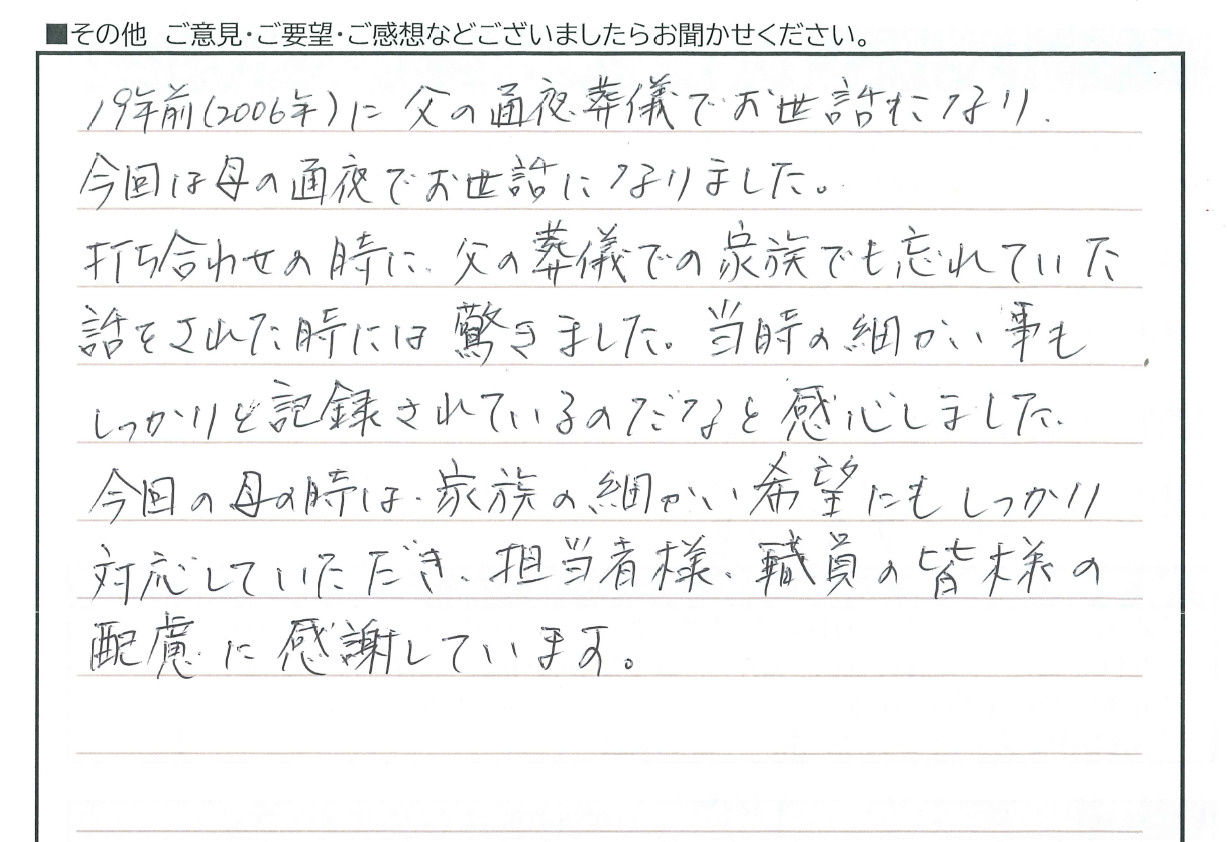 ■その他 ご意見・ご要望・ご感想などございましたらお聞かせください。
19年前(2006年)に父の通夜葬儀でお世話になり、
今回は母の通夜でお世話になりました。
打ち合わせの時に、父の葬儀での家族でも忘れていた
話をされた時には驚きました。当時の細かい事も
しっかりと記録されているのだなと感心しました。
今回の母の時は、家族の細かい希望にもしっかり
対応していただき、担当者様、職員の皆様の
配慮に感謝しています。